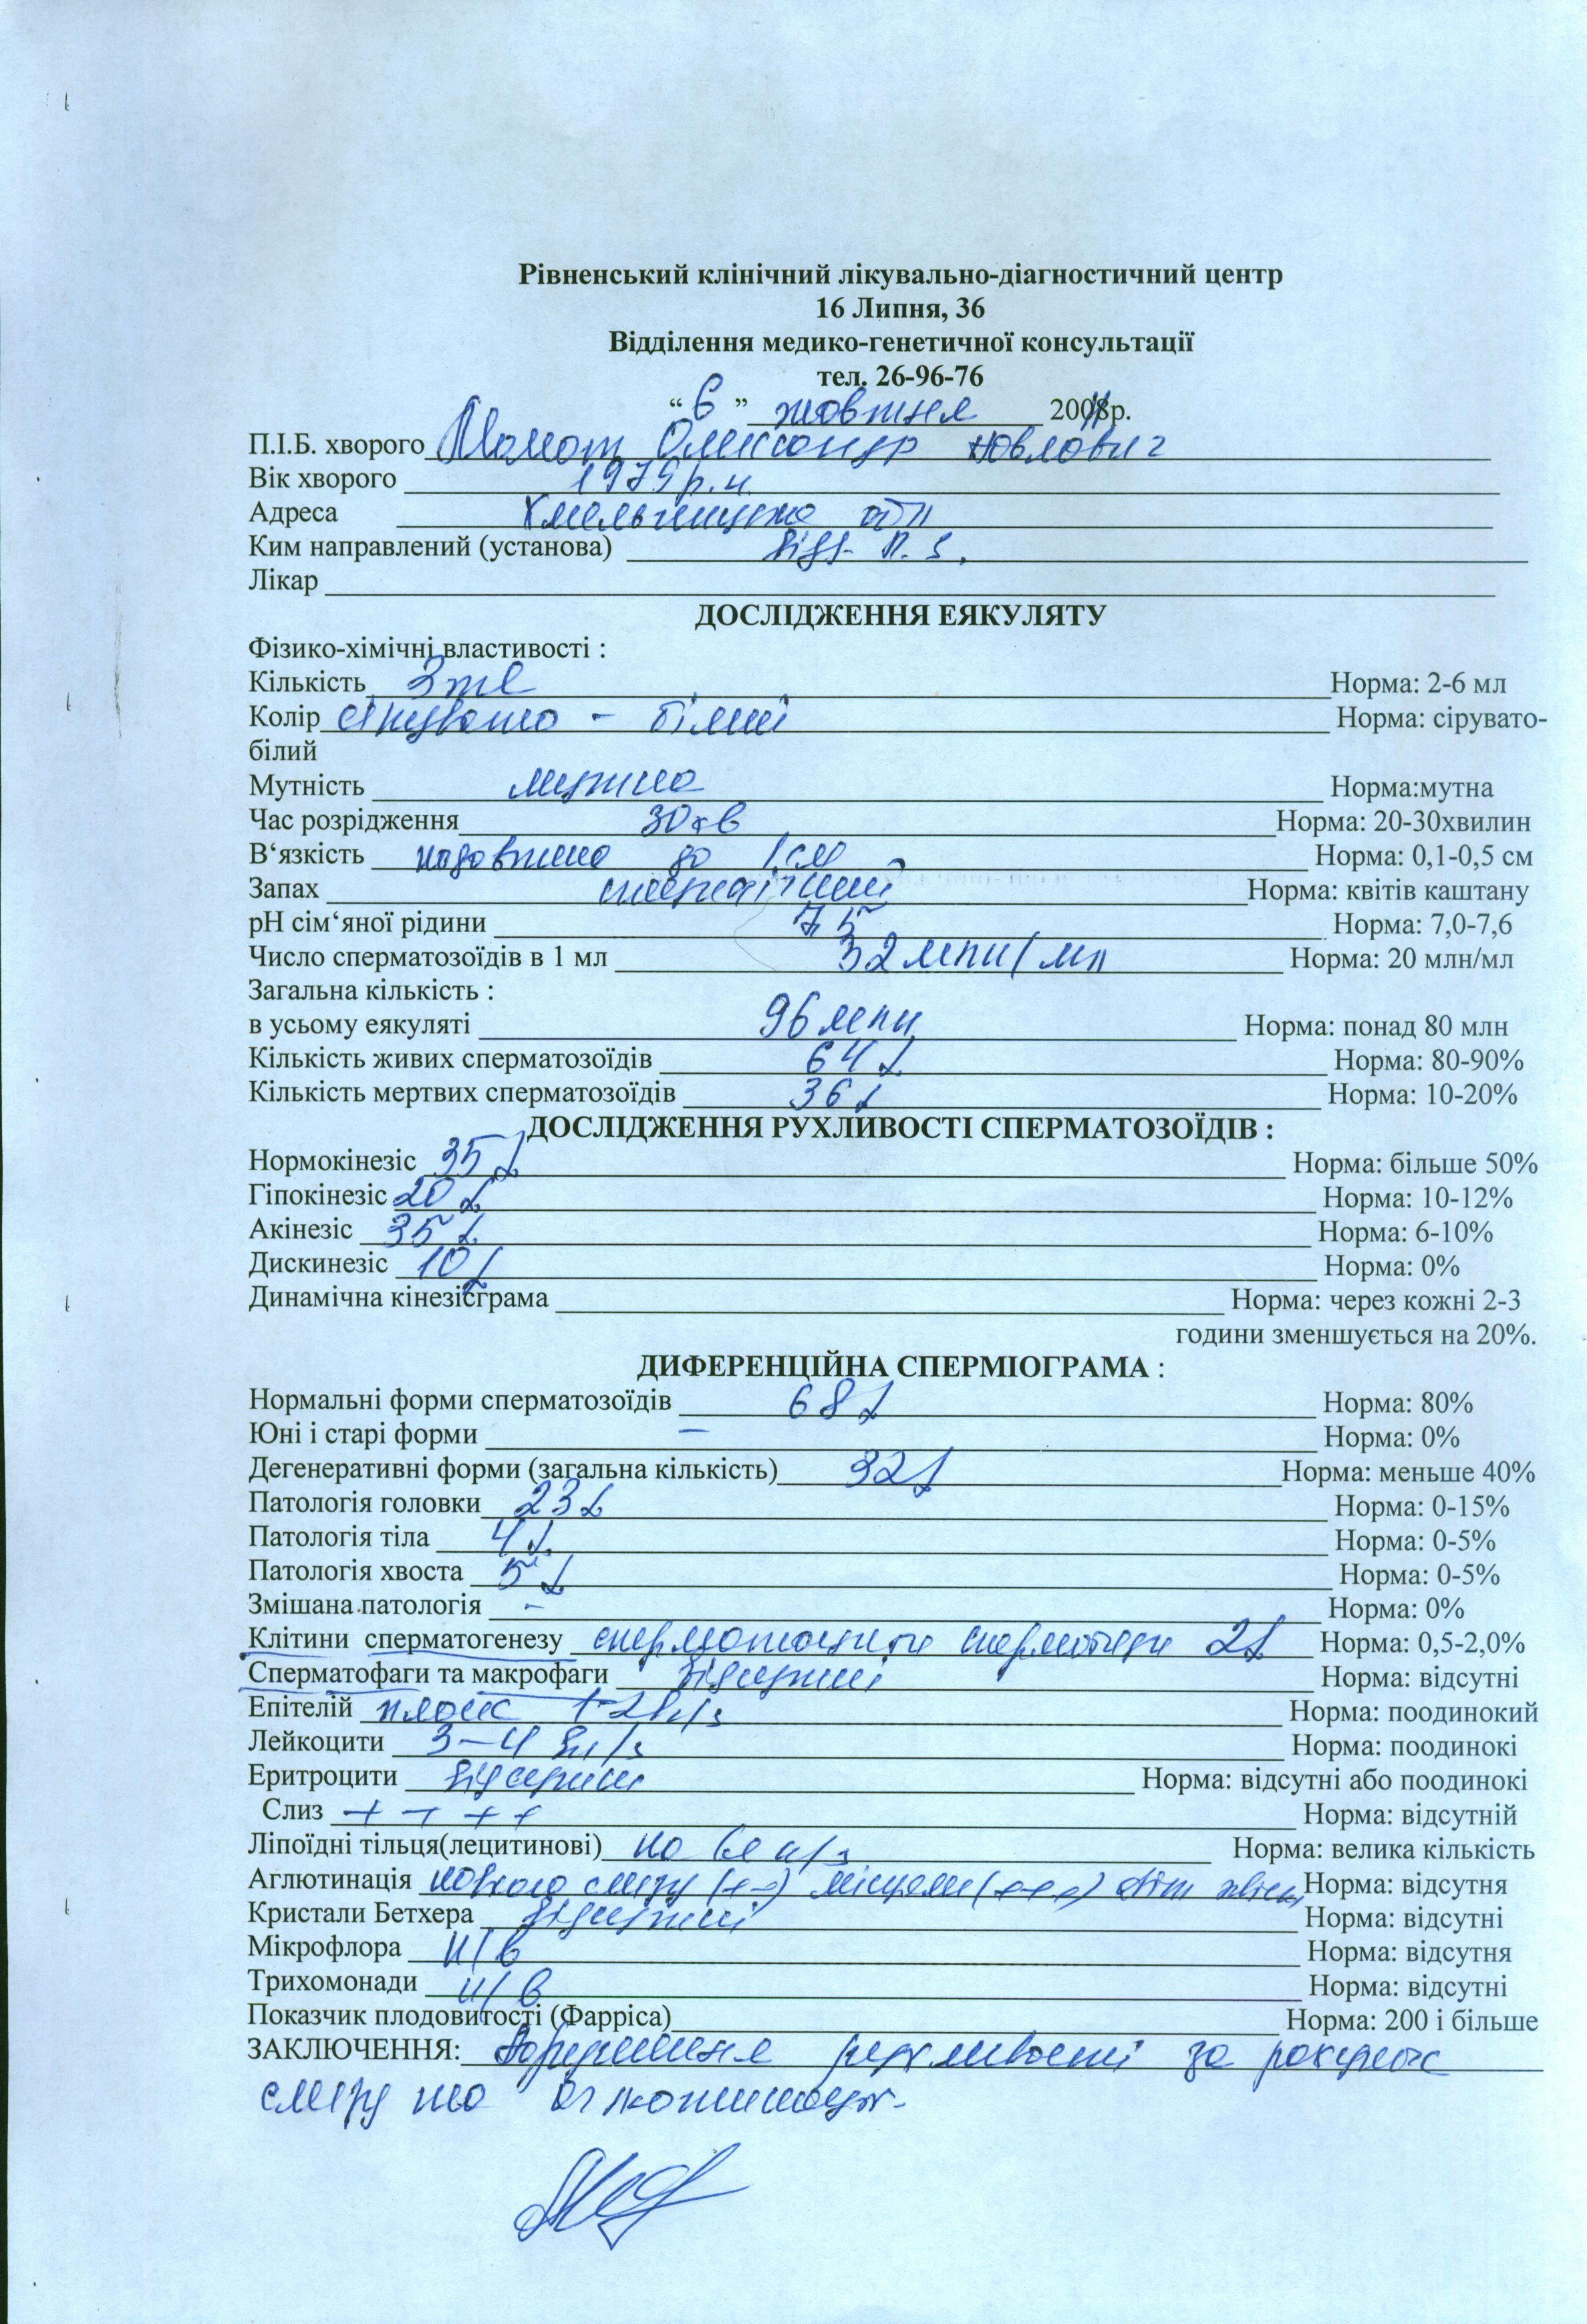 Рівненський клінічний лікувально-діагностичний центр
16 Липня, 36
Відділення медико-генетичної консультації
тел. 26-96-76
“ 6 ” жовтня 200 р.
П.І.Б. хворого Олександр Павлович
Вік хворого 1975 р.н.
Адреса Хмельницька обл
Ким направлений (установа)
Лікар
ДОСЛІДЖЕННЯ ЕЯКУЛЯТУ
Фізико-хімічні властивості :
Кількість 3 мл Норма: 2-6 мл
Колір сірувато - білий Норма: сірувато-
білий
Мутність мутна Норма:мутна
Час розрідження 30 хв Норма: 20-30хвилин
В‘язкість до 1 см Норма: 0,1-0,5 см
Запах специфічний Норма: квітів каштану
рН сім‘яної рідини 7,5 Норма: 7,0-7,6
Число сперматозоїдів в 1 мл 32 млн/мл Норма: 20 млн/мл
Загальна кількість :
в усьому еякуляті 96 млн Норма: понад 80 млн
Кількість живих сперматозоїдів 64 % Норма: 80-90%
Кількість мертвих сперматозоїдів 36 % Норма: 10-20%
ДОСЛІДЖЕННЯ РУХЛИВОСТІ СПЕРМАТОЗОЇДІВ :
Нормокінезіс 35 % Норма: більше 50%
Гіпокінезіс 20 % Норма: 10-12%
Акінезіс 35 % Норма: 6-10%
Дискинезіс 10 % Норма: 0%
Динамічна кінезісграма Норма: через кожні 2-3
години зменшується на 20%.
ДИФЕРЕНЦІЙНА СПЕРМІОГРАМА :
Нормальні форми сперматозоїдів 68 % Норма: 80%
Юні і старі форми – Норма: 0%
Дегенеративні форми (загальна кількість) 32 % Норма: меньше 40%
Патологія головки 23 % Норма: 0-15%
Патологія тіла 4 % Норма: 0-5%
Патологія хвоста 5 % Норма: 0-5%
Змішана патологія – Норма: 0%
Клітини сперматогенезу сперматоцити сперматиди 2 % Норма: 0,5-2,0%
Сперматофаги та макрофаги відсутні Норма: відсутні
Епітелій плоск Норма: поодинокий
Лейкоцити 3–4 Норма: поодинокі
Еритроцити відсутні Норма: відсутні або поодинокі
Слиз + + + + Норма: відсутній
Ліпоїдні тільця(лецитинові) Норма: велика кількість
Аглютинація слизу (++) місцями (+++) Норма: відсутня
Кристали Бетхера відсутні Норма: відсутні
Мікрофлора н/в Норма: відсутня
Трихомонади н/в Норма: відсутні
Показчик плодовитості (Фарріса) Норма: 200 і більше
ЗАКЛЮЧЕННЯ: Порушення рухливості за рахунок
слизу та аглютинації.